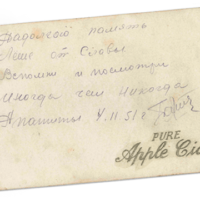 На долгую память
Леше от Славы
Вспомни и посмотри
Иногда чем никогда
Апатиты 4.11.51 г
PURE
Apple Ci